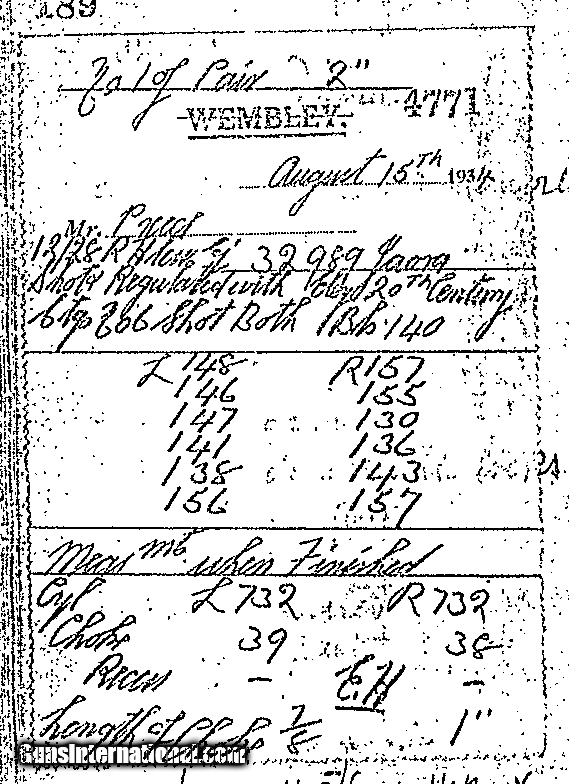 189
No 1 of Pair 2"
WEMBLEY. 4771
August 15th 1934
Mr. Preece
12/28 R 32989
Shots Regulated with Eley 20th Century
6 Shot Both Bls 140
L 148 R 157
146 155
147 130
141 136
138 143
156 157
Meas mts when Finished
Cyl L 732 R 732
Choke 39 38
Recess – E.H –
Length of Choke 7/8 1"
GunsInternational.com